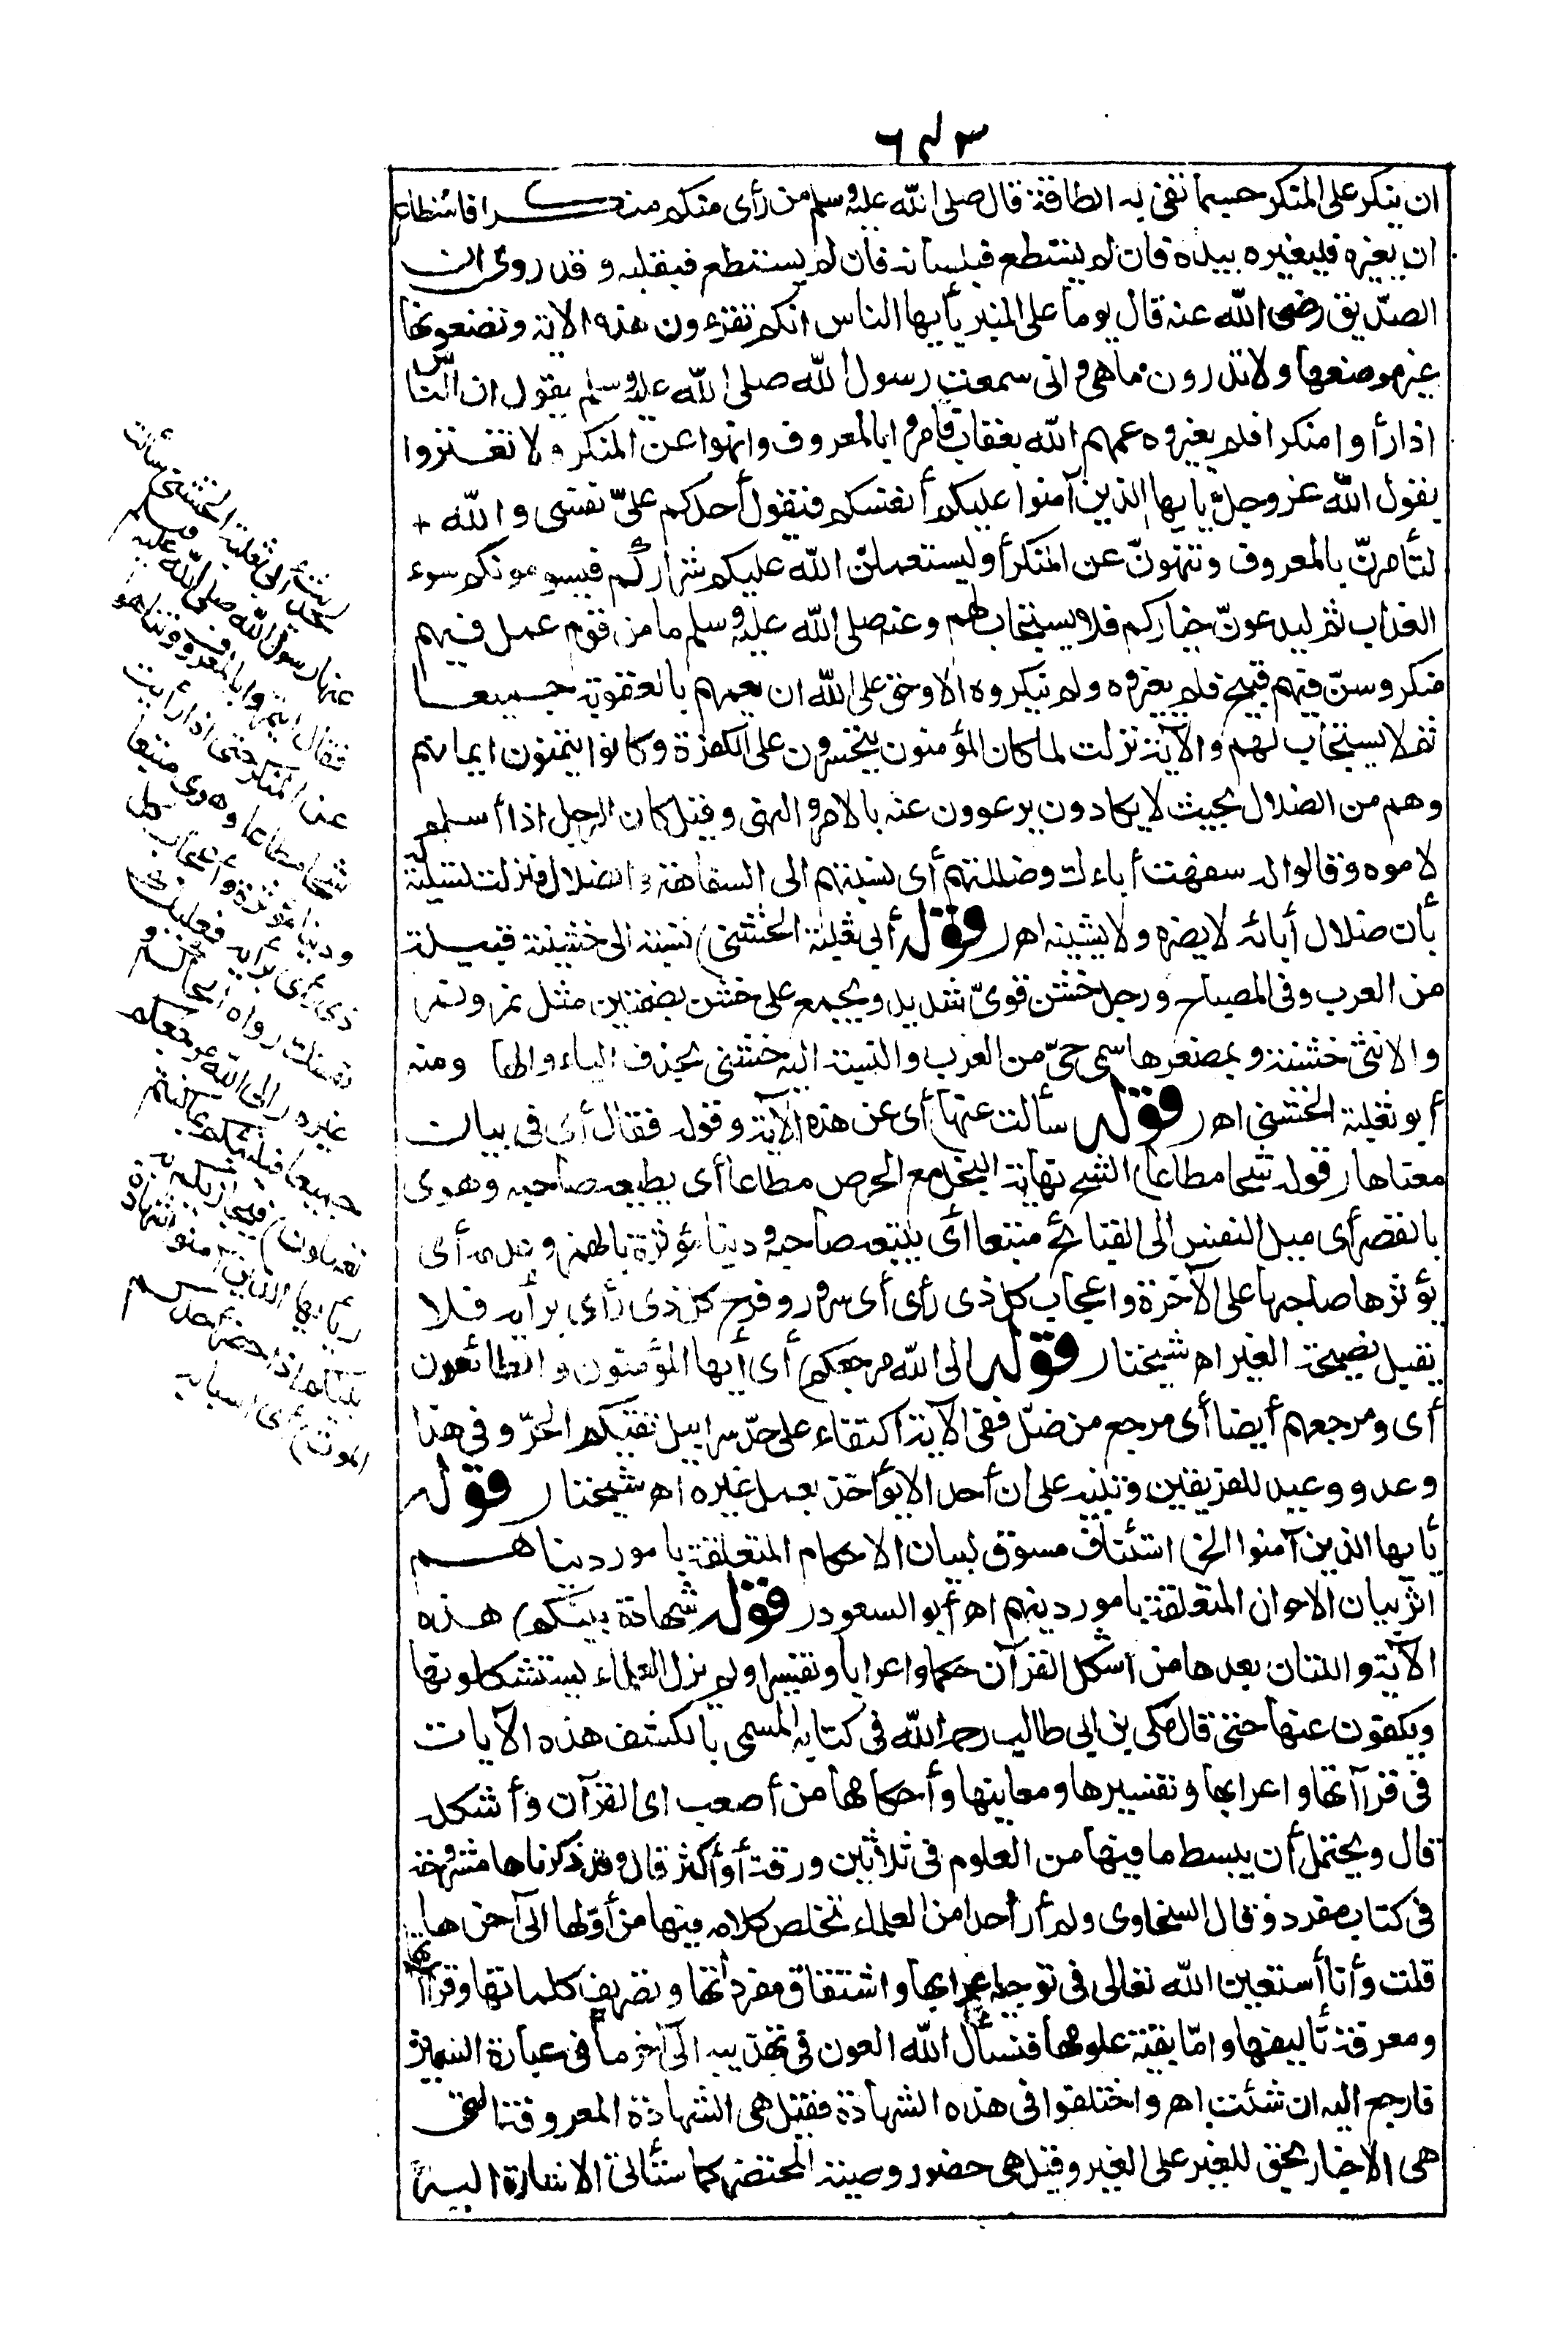 ٦٤٣
ان ينكر على المنكر حسبما تفى به الطاقة قال صلى الله عليه وسلم من رأى منكم منكرا فاستطاع
ان يغيره فليغيره بيده فان لم يستطع فبلسانه فان لم يستطع فبقلبه وقد روى ان
الصدّيق رضى الله عنه قال يوما على المنبر يأيها الناس انكم تقرءون هذه الاية وتضعونها
غير موضعها ولا تدرون ما هى وانى سمعت رسول الله صلى الله عليه وسلم يقول ان الناس
اذا رأوا منكرا فلم يغيروه عمهم الله بعقاب فامروا بالمعروف وانهوا عن المنكر ولا تغتروا
بقول الله عز وجلّ يايها الذين آمنوا عليكم أنفسكم فيقول أحدكم علىّ نفسى والله +
لتأمرنّ بالمعروف وتنهونّ عن المنكر أو ليستعملنّ الله عليكم شراركم فيسومونكم سوء
العذاب ثم ليدعونّ خياركم فلا يستجاب لهم وعنه صلى الله عليه وسلم ما من قوم عمل فيهم
منكر وسنّ فيهم قبيح فلم يغيروه ولم ينكروه الا وحق على الله ان يعمهم بالعقوبة جميعا
ثم لا يستجاب لهم والآية نزلت لما كان المؤمنون يتحسرون على الكفرة وكانوا يتمنون ايمانهم
وهم من الضلال بحيث لا يكادون يرعوون عنه بالامر والنهى وقيل كان الرجل اذا أسلم
لاموه وقالوا له سفهت أباءك وضللتهم أى نسبتهم الى السفاهة والضلال فنزلت تسلية له
بأن ضلال أبائه لا يضره ولا يشينه اهـ (قوله أبى ثعلبة الخشنى) نسبة الى خشينة قبيلة
من العرب وفى المصباح ورجل خشن قوىّ شديد ويجمع على خشن بضمتين مثل نمر ونمر
والانثى خشنة وبمصغرها سمى حىّ من العرب والنسبة اليه خشنى بحذف الياء والهاء ومنه
أبو ثعلبة الخشنى اهـ (قوله سألت عنها) أى عن هذه الآية وقوله فقال أى فى بيان
معناها (قوله شحا مطاعا) الشح نهاية البخل مع الحرص مطاعا أى يطيعه صاحبه وهوى
بالقصر أى ميل النفس الى القبائح متبعا أى يتبعه صاحبه ودنيا مؤثرة بالهمز وتركه أى
يؤثرها صاحبها على الآخرة واعجاب كل ذى رأى أى سرور وفرح كل ذى رأى برأيه فلا
يقبل نصيحة الغير اهـ شيخنا (قوله الى الله مرجعكم) أى أيها المؤمنون والطائعون
أى ومرجعهم أيضا أى مرجع من ضلّ ففى الآية اكتفاء على حدّ سرابيل تقيكم الحرّ وفى هذا
وعد ووعيد للفريقين وتنبيه على ان أحدا لا يؤاخذ بعمل غيره اهـ شيخنا (قوله
يأيها الذين آمنوا الخ) استئناف مسوق لبيان الاحكام المتعلقة بامور دنياهم
اثر بيان الاحوال المتعلقة بامور دينهم اهـ أبو السعود (قوله شهادة بينكم) هذه
الآية واللتان بعدها من أشكل القرآن حكما واعرابا وتفسيرا ولم يزل العلماء يستشكلونها
ويكفون عنها حتى قال مكى بن ابى طالب رحمه الله فى كتابه المسمى بالكشف هذه الآيات
فى قراآتها واعرابها وتفسيرها ومعانيها وأحكامها من أصعب اى القرآن وأشكله
قال ويحتمل أن يبسط ما فيها من العلوم فى ثلاثين ورقة أو أكثر قال وقد ذكرناها مشروحة
فى كتاب مفرد وقال السخاوى ولم أر أحدا من العلماء تخلص كلامه فيها من أوّلها الى آخرها
قلت وأنا أستعين الله تعالى فى توجيه اعرابها واشتقاق مفرداتها وتصريف كلماتها وقراآتها
ومعرفة تأليفها وامّا بقية علومها فنسأل الله العون فى تهذيبه الى آخر ما فى عبارة السمين
فارجع اليه ان شئت اهـ واختلفوا فى هذه الشهادة فقيل هى الشهادة المعروفة التى
هى الاخبار بحق للغير على الغير وقيل هى حضور وصية المحتضر كما ستأتى الاشارة اليه
حديث أبى ثعلبة الخشنى سألت
عنها رسول الله صلى الله عليه وسلم
فقال ايتمروا بالمعروف وتناهوا
عن المنكر حتى اذا رأيت
شحا مطاعا وهوى متبعا
ودنيا مؤثرة واعجاب كل
ذى رأى برأيه فعليك
نفسك رواه الحاكم و
غيره (الى الله مرجعكم
جميعا فينبئكم بما كنتم
تعملون) فيجازيكم به
(يأيها الذين آمنوا شهادة
بينكم اذا حضر أحدكم
الموت) أى اسبابه